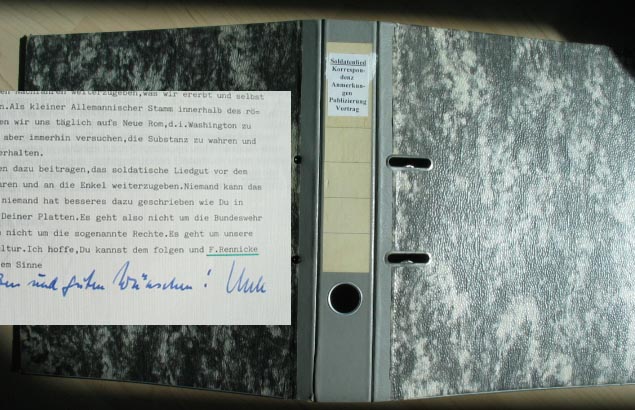 Soldatenlied
Korrespon-
denz
Anmerkun-
gen
Publizierung
Vortrag
en Nachfahren weiterzugeben,was wir ererbt und selbst
n.Als kleiner Allemannischer Stamm innerhalb des rö-
en wir uns täglich aufs Neue Rom,d.i.Washington zu
aber immerhin versuchen,die Substanz zu wahren und
erhalten.
en dazu beitragen,das soldatische Liedgut vor dem
ren und an die Enkel weiterzugeben.Niemand kann das
niemand hat besseres dazu geschrieben wie Du in
Deiner Platten.Es geht also nicht um die Bundeswehr
e nicht um die sogenannte Rechte.Es geht um unsere
ltur.Ich hoffe,Du kannst dem folgen und F.Rennicke
em Sinne
en und guten Wünschen!